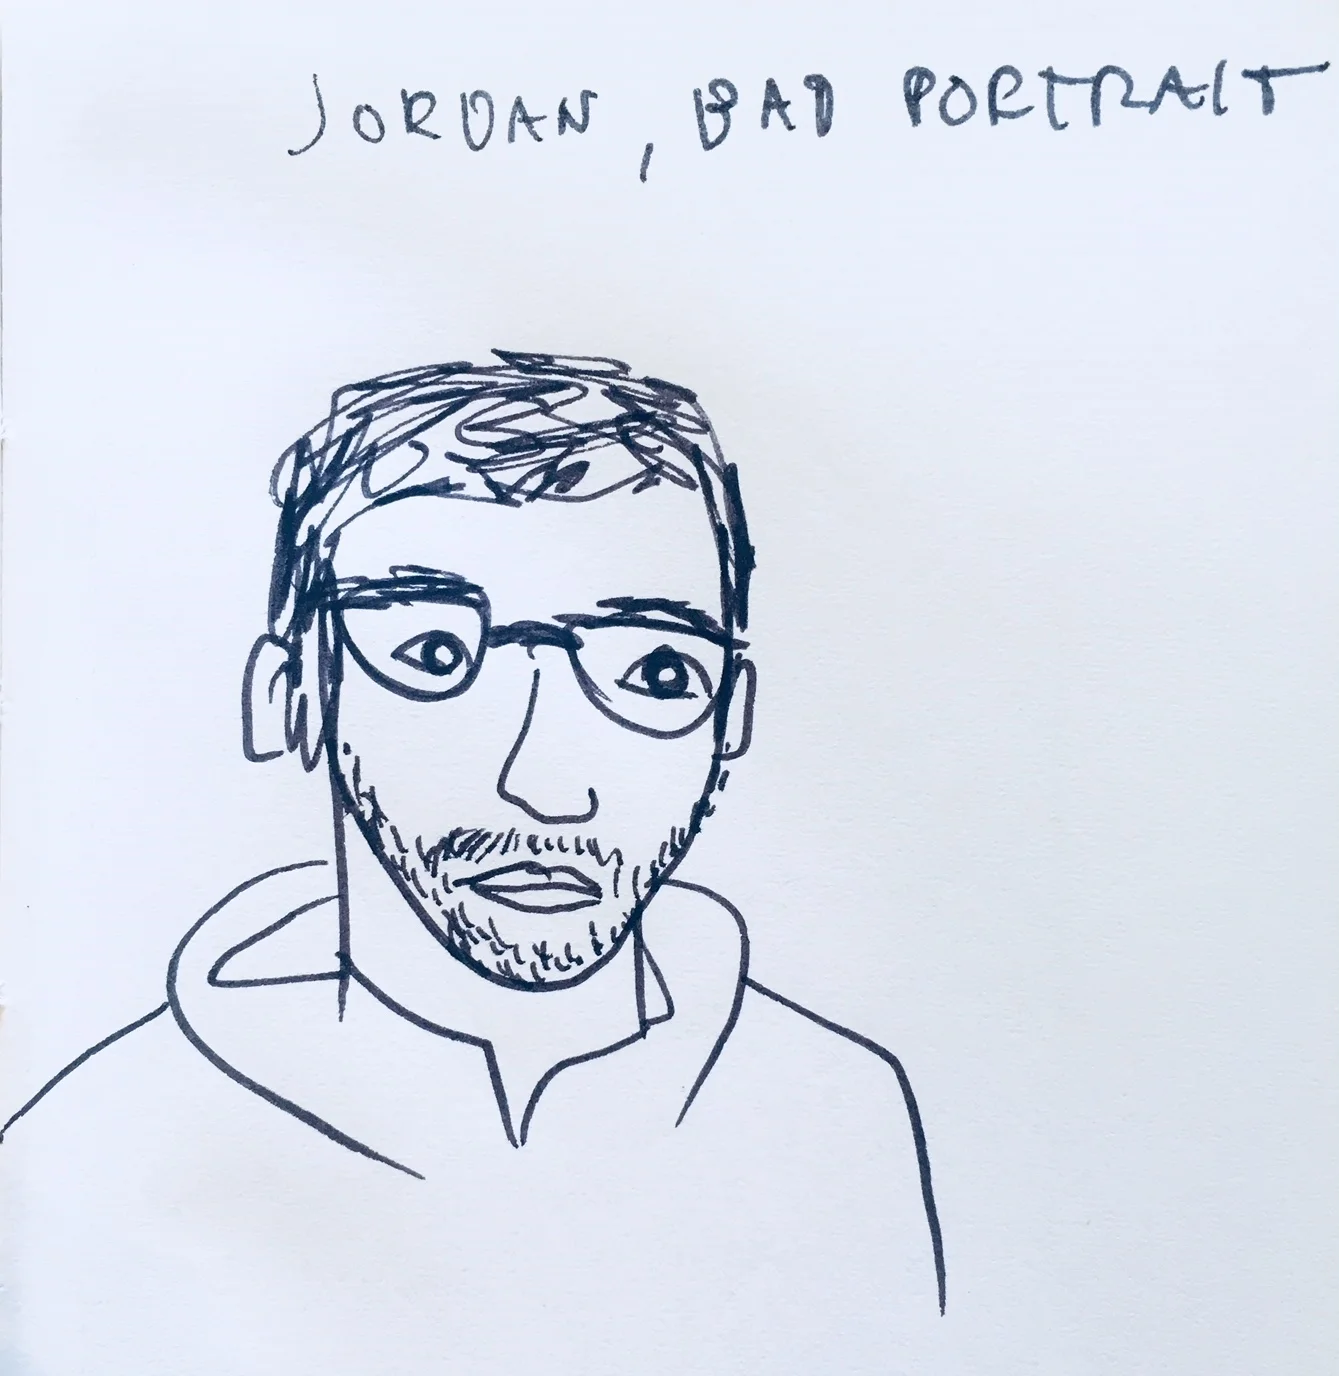 JORDAN, BAD PORTRAIT